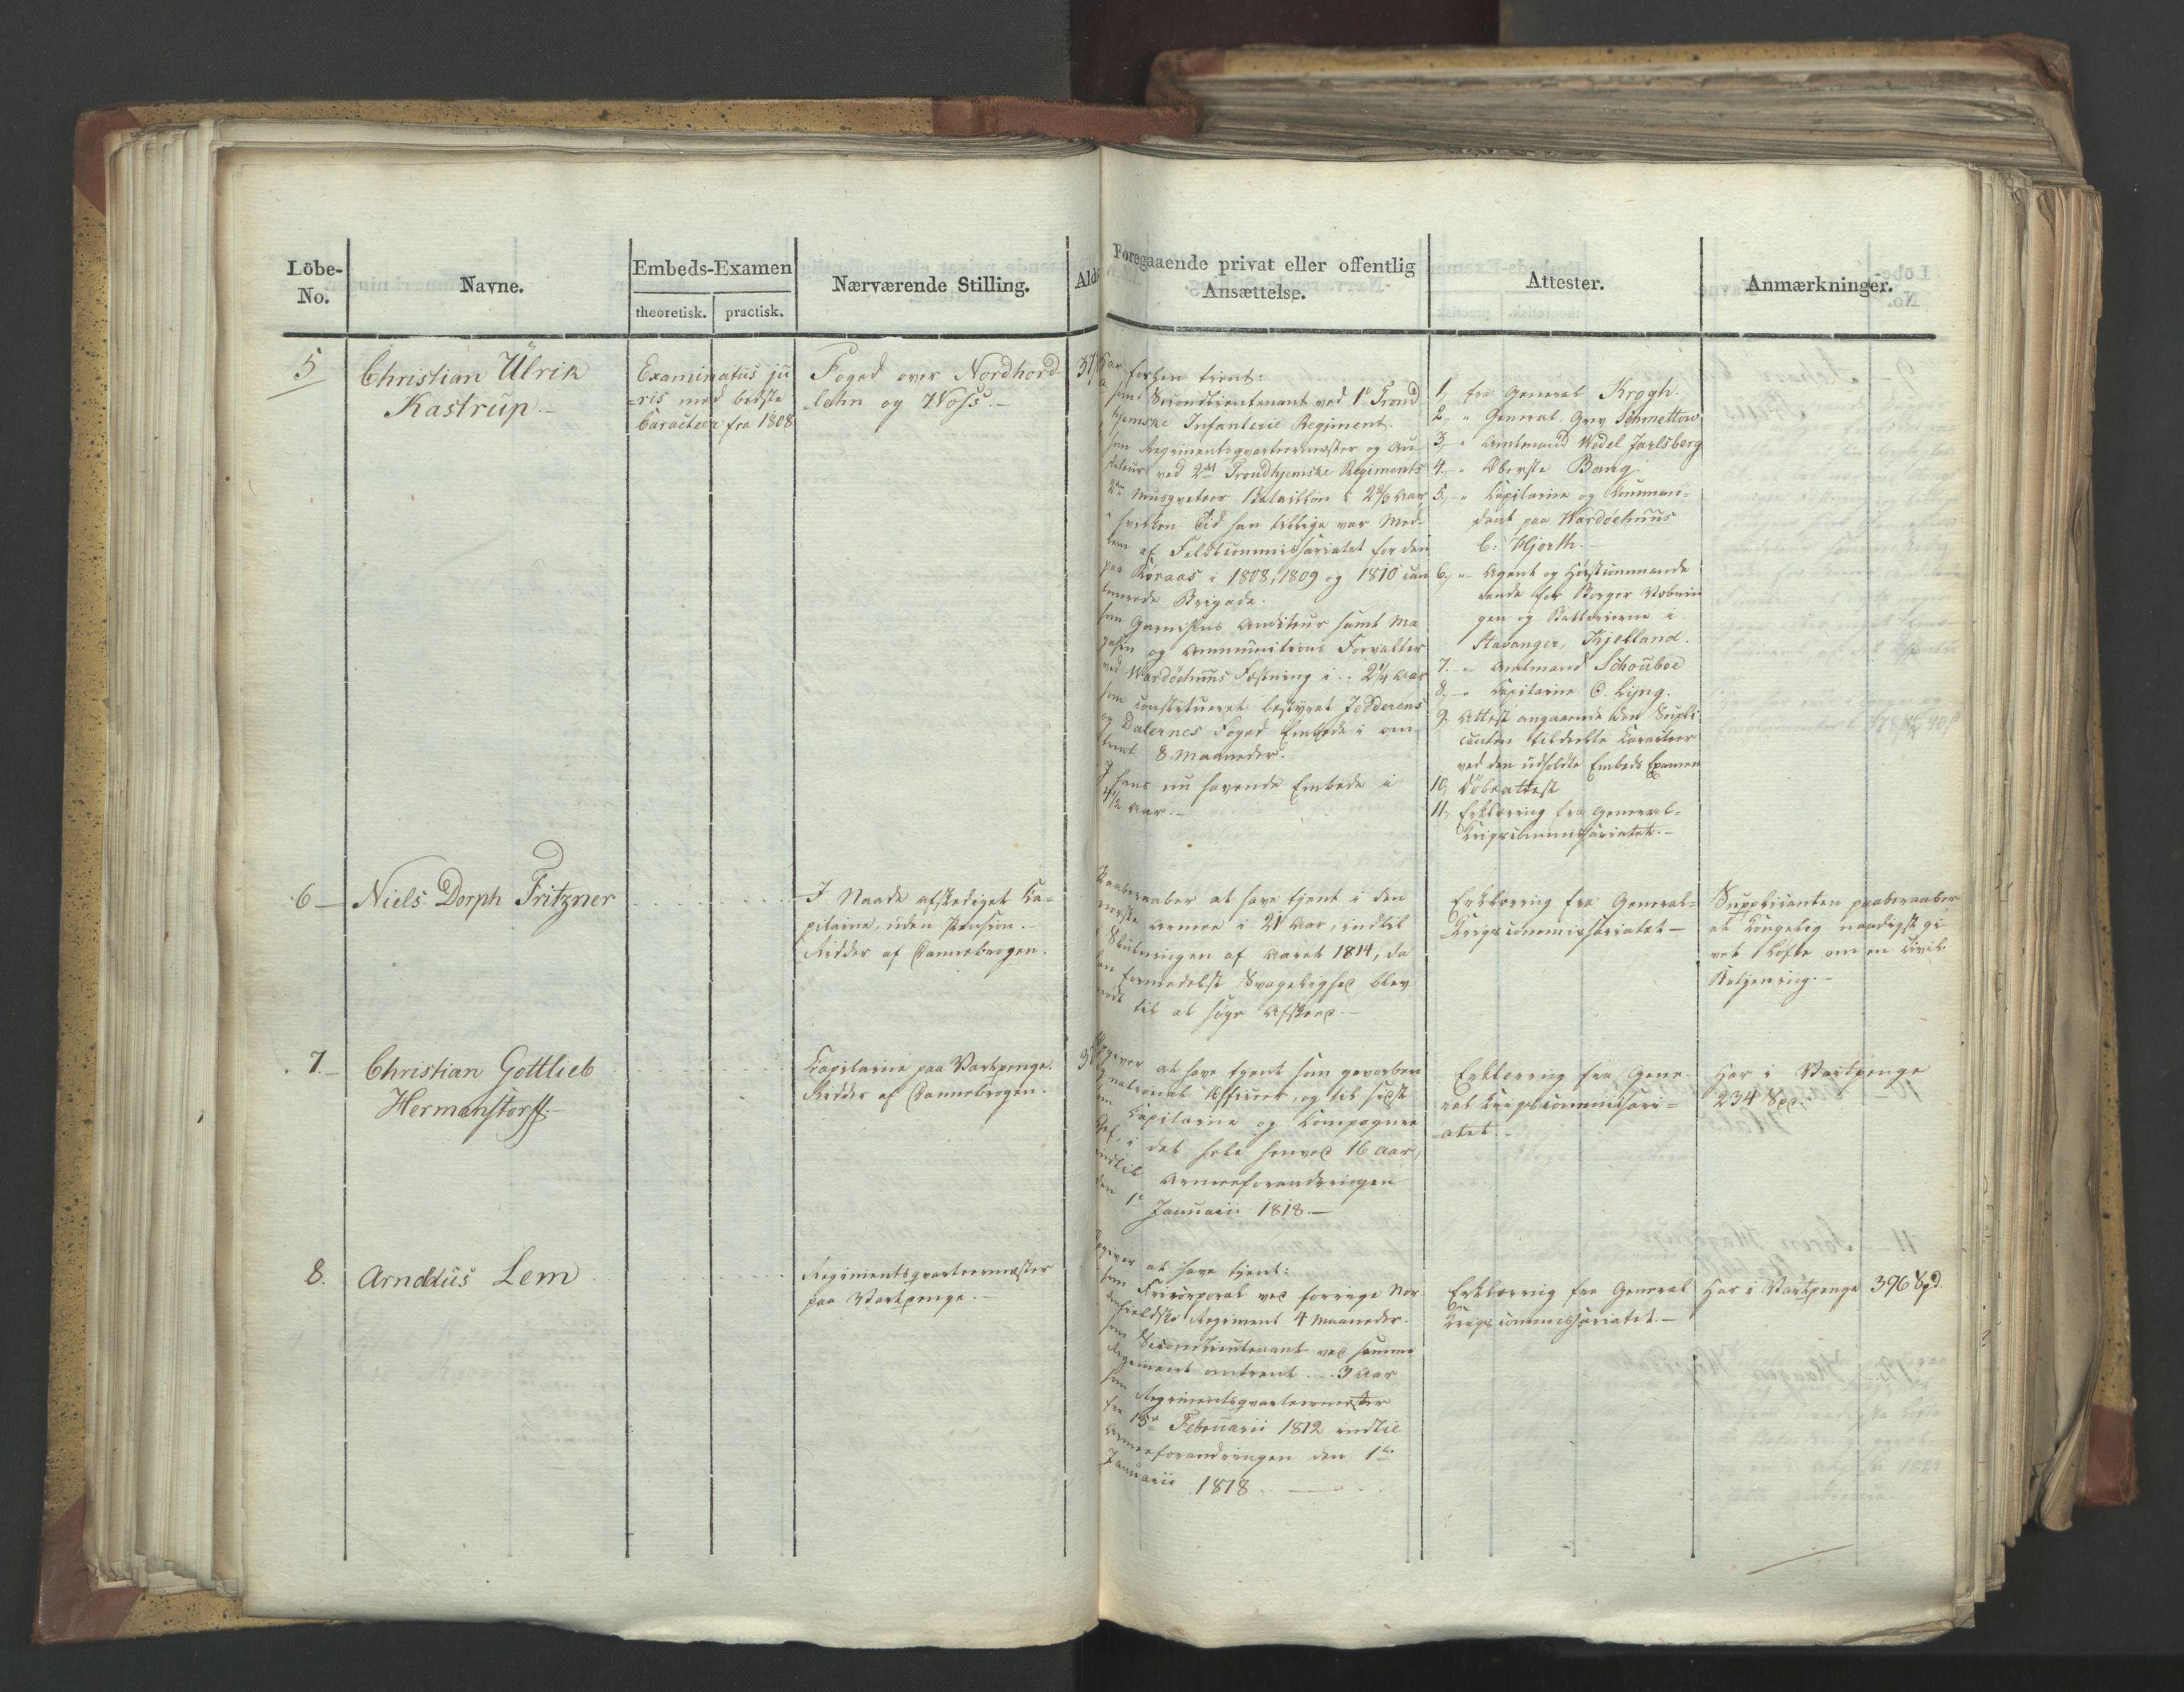 Löbe-
No.
Navne.
Embeds-Examen
theoretisk.
practisk.
Nærværende Stilling.
Ald
Foregaaende privat eller offentlig
Ansættelse.
Attester.
Anmærkninger.
5
Christian Ulrik
Kastrup.-
Examinatus ju
=ris med bedste
Caracteer fra 1808
Foged over Nordhord
lehn og Woss.-
37
Har forhen tient:
som Secondlieutenant ved 1e Trond
hjemske Infanterie Regiment.
som Regimentsqvarteermester og Au-
diteur ved 2det Trondhjemske Regiments
2den Musqveteer Bataillon i 2 2/3 Aar
i hvilken Tid han tillige var Med-
lem af Feltcommissariatet for den
paa Røraas i 1808, 1809 og 1810 can
tonnerede Brigade.
som Garnisons Auditeur samt Ma
gasin og Ammunitions Forvalter
ved Wardöehuus Fæstning i .. 2 1/4 Aar
som constitueret bestyret Jedderens
og Dalernes Foged Embede i om-
trent 8 Maaneder.
I hans nu havende Embede i
4 1/2 Aar.-
1, fra General Krogh.
2, " General Grev Schmettow
3, " Amtmand Wedel Jarlsberg
4, " Oberste Bang.
5, " Capitaine og Comman-
dant paa Wardöehuus
C: Hjorth.
6, " Agent og Høistcommande
rende for Borger Væbnin
gen og Batterierne i
Stavanger, Kjelland.
7. " Amtmand Schouboe
8, " Capitaine O. Lyng.
9. Attest angaaende den Suppli
canten tildeelte Caracteer
ved den udholdte Embeds Examen
10, Döbeattest
11, Erklæring fra General-
Krigscommissariatet.-
6
Niels Dorph Fritzner
I Naade afskediget Ca-
pitaine, uden Pension.-
Ridder af Dannebrogen.
Paaberaaber at have tjent i den
norske Armee i 21 Aar, indtil
Slutningen af Aaret 1814, da
han formedelst Svagelighed blev
nødt til at søge Afskeed.-
Erklæring fra General=
Krigscommissariatet-
Supplicanten paaberaaber
et Kongelig naadigst gi
vet Løfte om en civil
Betjening.-
7.
Christian Gottlieb
Hermanstorff.-
Capitaine paa Vartpenge.
Ridder af Dannebrogen.
Opgiver at have tjent som gevorben
og national Officeer, og til sidst
som Capitaine og Compagnie
Chef, i det hele henved 16 Aar,
indtil Armeeforandringen
den 1e Januarii 1818.-
Erklæring fra Gene
ral Krigscommissari=
atet.-
Har i Vartpenge
234 Spd.
8.
Arnoldus Lem
Regimentsqvarteermester
paa Vartpenge.-
Opgiver at have tjent:
som Fricorporal ved forrige Nor
denfieldske Regiment 4 Maaneder.
som Secondlieutenant ved samme
Regiment omtrent ... 3 Aar
som Regimentsqvarteermester
fra 15de Februarii 1812 indtil
Armeeforandringen den 1ste
Januarii 1818.
Erklæring fra General
Krigscommissariatet.-
Har i Vartpenge 396 Spd.